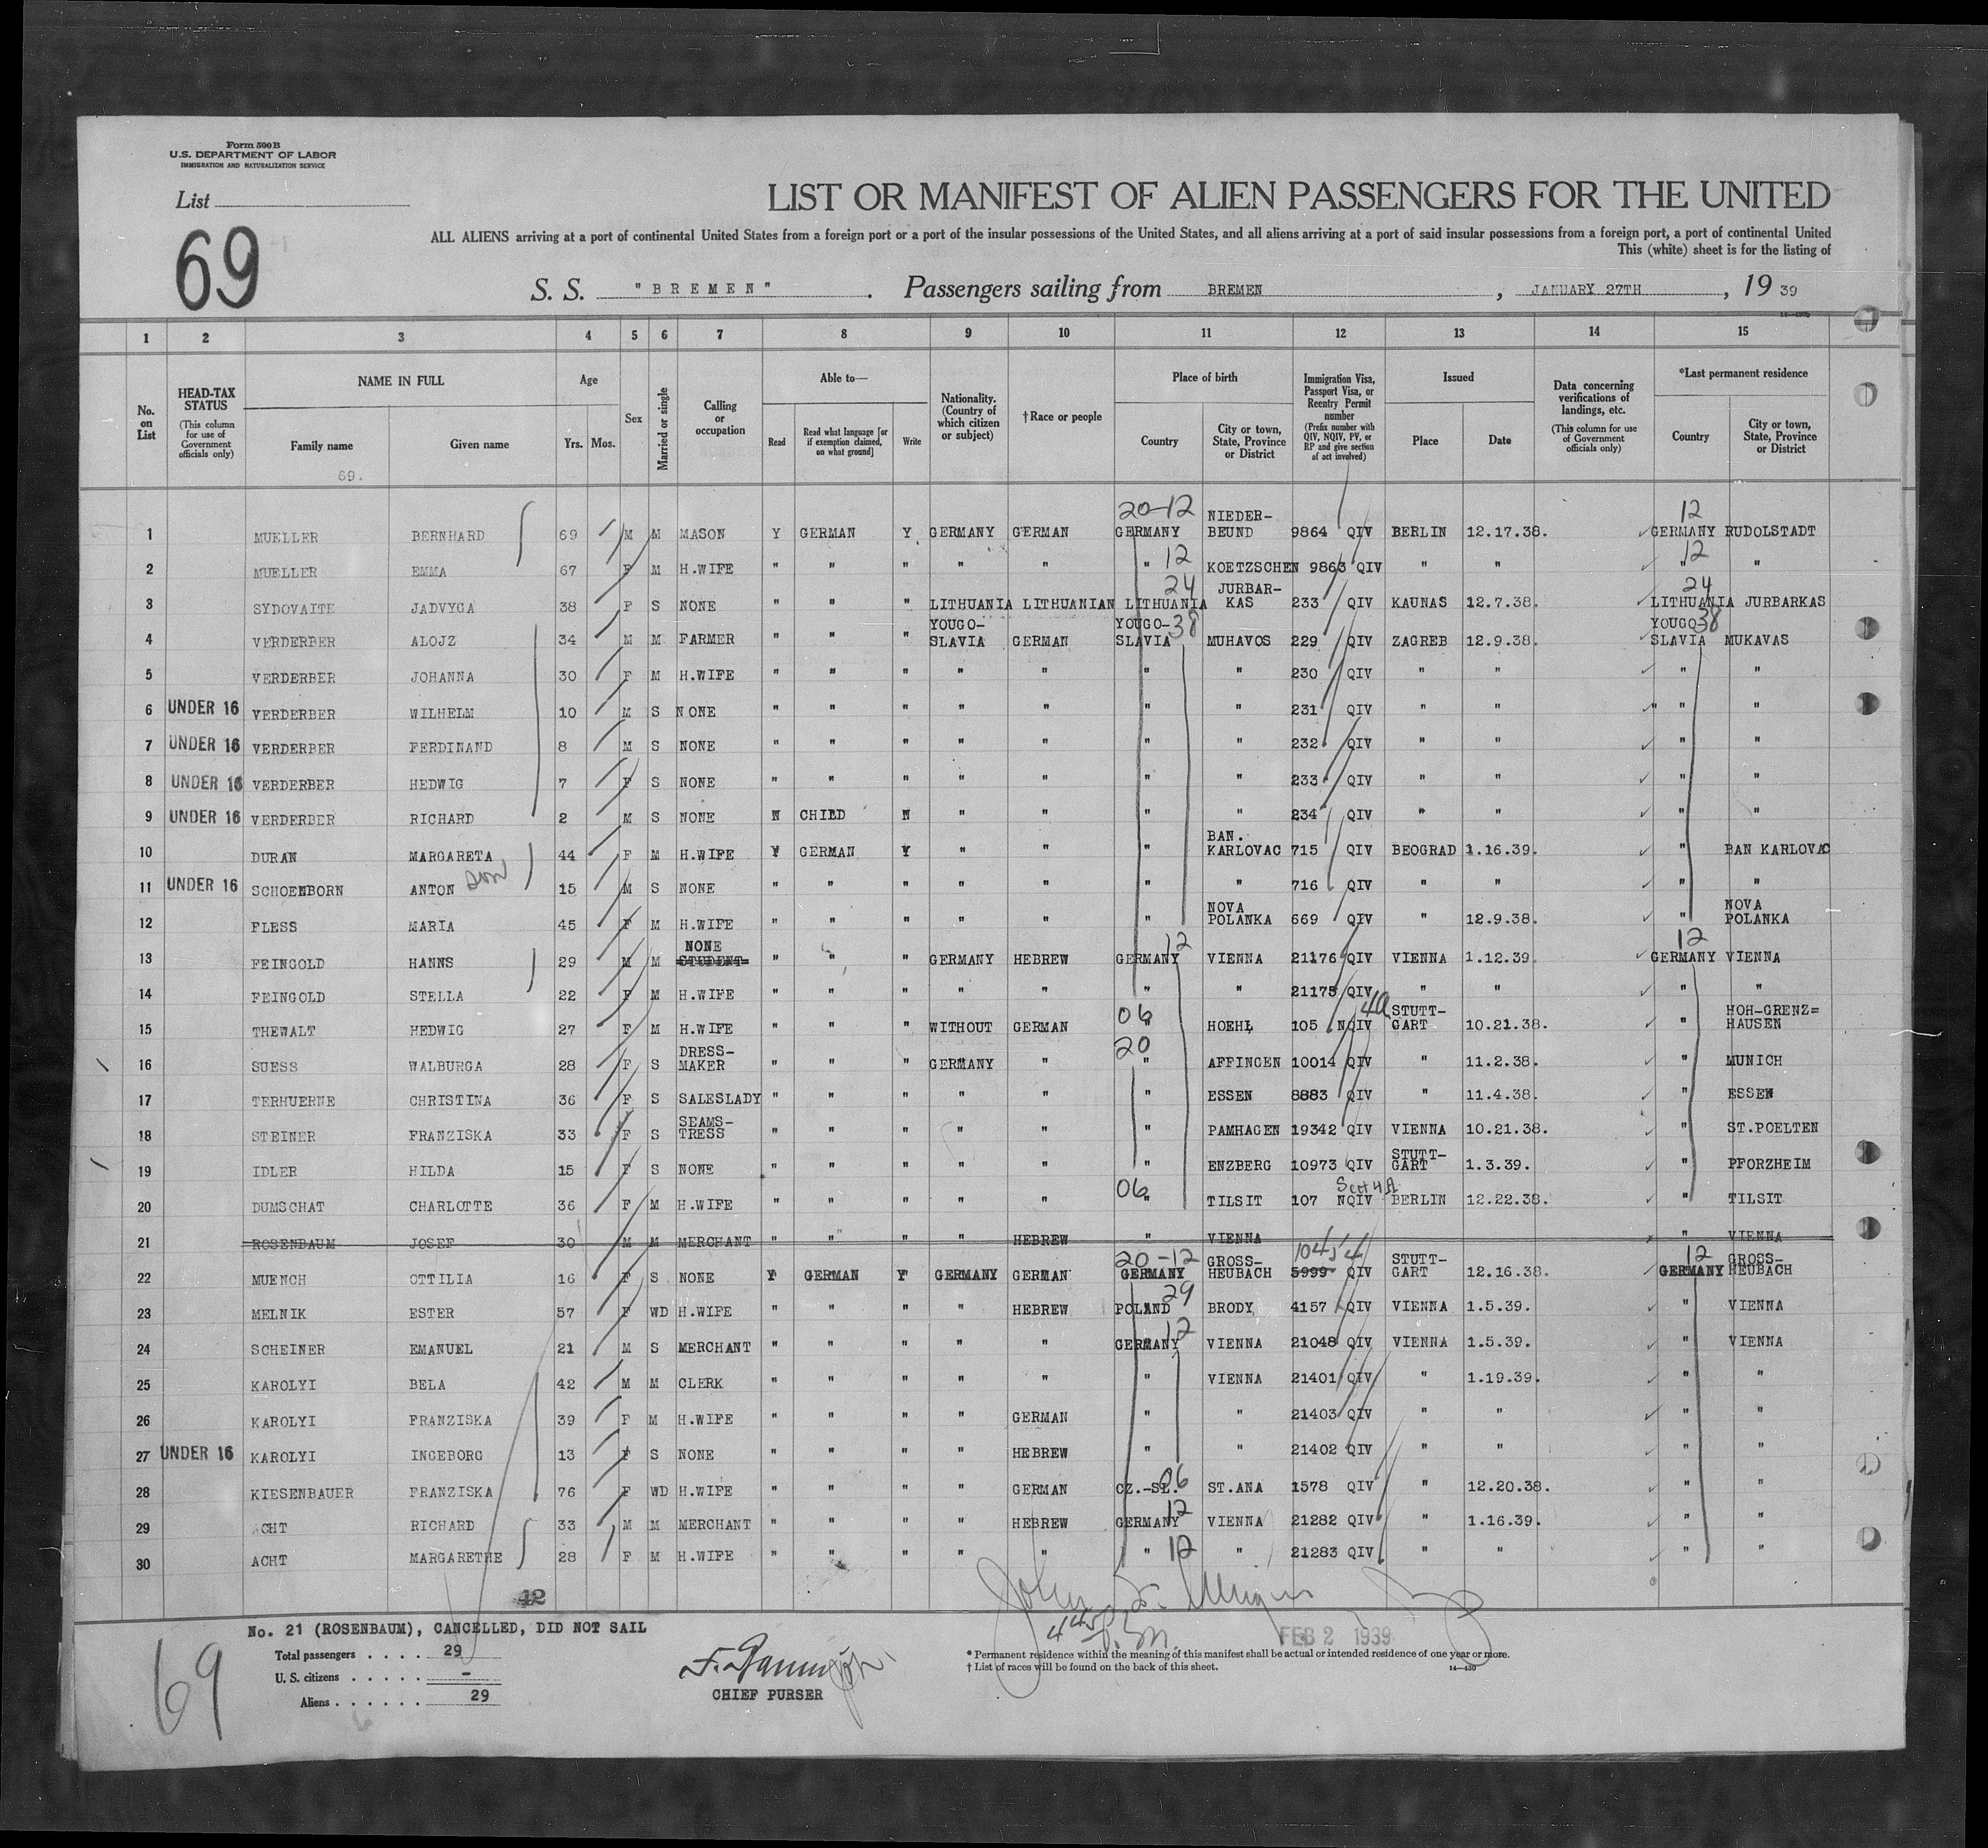 Form 500 B
U.S. DEPARTMENT OF LABOR
IMMIGRATION AND NATURALIZATION SERVICE
List
69
LIST OR MANIFEST OF ALIEN PASSENGERS FOR THE UNITED
ALL ALIENS arriving at a port of continental United States from a foreign port or a port of the insular possessions of the United States, and all aliens arriving at a port of said insular possessions from a foreign port, a port of continental United
This (white) sheet is for the listing of
S. S. "BREMEN". Passengers sailing from BREMEN, JANUARY 27TH, 1939
1 2 3 4 5 6 7 8 9 10 11 12 13 14 15
No. on List
HEAD-TAX STATUS (This column for use of Government officials only)
NAME IN FULL Family name Given name
Age Yrs. Mos.
Sex
Married or single
Calling or occupation
Able to— Read Read what language [or if exemption claimed, on what ground] Write
Nationality. (Country of which citizen or subject)
†Race or people
Place of birth Country City or town, State, Province or District
Immigration Visa, Passport Visa, or Reentry Permit number (Prefix number with QIV, NQIV, PV, or RP and give section of act involved)
Issued Place Date
Data concerning verifications of landings, etc. (This column for use of Government officials only)
*Last permanent residence Country City or town, State, Province or District
69.
1 MUELLER BERNHARD 69 M M MASON Y GERMAN Y GERMANY GERMAN 20-12 GERMANY NIEDER-BEUND 9864 QIV BERLIN 12.17.38. 12 GERMANY RUDOLSTADT
2 MUELLER EMMA 67 F M H.WIFE " " " " " " 12 KOETZSCHEN 9863 QIV " " 12 " "
3 SYDOVAITE JADVYGA 38 F S NONE " " " LITHUANIA LITHUANIAN 24 LITHUANIA JURBAR-KAS 233 QIV KAUNAS 12.7.38. 24 LITHUANIA JURBARKAS
4 VERDERBER ALOJZ 34 M M FARMER " " " YOUGO-SLAVIA GERMAN YOUGO-SLAVIA 38 MUHAVOS 229 QIV ZAGREB 12.9.38. YOUGO-SLAVIA 38 MUKAVAS
5 VERDERBER JOHANNA 30 F M H.WIFE " " " " " " " 230 QIV " " " "
6 UNDER 16 VERDERBER WILHELM 10 M S NONE " " " " " " " 231 QIV " " " " "
7 UNDER 16 VERDERBER FERDINAND 8 M S NONE " " " " " " " 232 QIV " " " "
8 UNDER 16 VERDERBER HEDWIG 7 F S NONE " " " " " " " 233 QIV " " " "
9 UNDER 16 VERDERBER RICHARD 2 M S NONE N CHILD N " " " " 234 QIV " " " "
10 DURAN MARGARETA 44 F M H.WIFE Y GERMAN Y " " " BAN. KARLOVAC 715 QIV BEOGRAD 1.16.39. " BAN KARLOVAC
11 UNDER 16 SCHOENBORN ANTON son 15 M S NONE " " " " " " " 716 QIV " " " "
12 FLESS MARIA 45 F M H.WIFE " " " " " " NOVA POLANKA 669 QIV " 12.9.38. " NOVA POLANKA
13 FEINGOLD HANNS 29 M M NONE STUDENT " " " GERMANY HEBREW GERMANY 12 VIENNA 21176 QIV VIENNA 1.12.39 12 GERMANY VIENNA
14 FEINGOLD STELLA 22 F M H.WIFE " " " " " " " 21175 QIV " " " "
15 THEWALT HEDWIG 27 F M H.WIFE " " " WITHOUT GERMAN 06 " HOEHL 105 NQIV 4a STUTT-GART 10.21.38. " HOH-GRENZ=HAUSEN
16 SUESS WALBURGA 28 F S DRESS-MAKER " " " GERMANY " 20 " AFFINGEN 10014 QIV " 11.2.38. " MUNICH
17 TERHUERNE CHRISTINA 36 F S SALESLADY " " " " " " ESSEN 8883 QIV " 11.4.38. " ESSEN
18 STEINER FRANZISKA 33 F S SEAMS-TRESS " " " " " " PAMHAGEN 19342 QIV VIENNA 10.21.38. " ST.POELTEN
19 IDLER HILDA 15 F S NONE " " " " " " ENZBERG 10973 QIV STUTT-GART 1.3.39. " PFORZHEIM
20 DUMSCHAT CHARLOTTE 36 F M H.WIFE " " " " " 06 " TILSIT 107 NQIV Sect 4A BERLIN 12.22.38. " TILSIT
21 ROSENBAUM JOSEF 30 M M MERCHANT " " " " HEBREW " VIENNA " VIENNA
22 MUENCH OTTILIA 16 F S NONE Y GERMAN Y GERMANY GERMAN 20-12 GERMANY GROSS-HEUBACH 10454 5999 QIV STUTT-GART 12.16.38. 12 GERMANY GROSS-HEUBACH
23 MELNIK ESTER 57 F WD H.WIFE " " " " HEBREW POLAND 29 BRODY 4157 QIV VIENNA 1.5.39. " VIENNA
24 SCHEINER EMANUEL 21 M S MERCHANT " " " " " GERMANY 12 VIENNA 21048 QIV VIENNA 1.5.39. " VIENNA
25 KAROLYI BELA 42 M M CLERK " " " " " " VIENNA 21401 QIV " 1.19.39. " "
26 KAROLYI FRANZISKA 39 F M H.WIFE " " " " GERMAN " " 21403 QIV " " " "
27 UNDER 16 KAROLYI INGEBORG 13 F S NONE " " " " HEBREW " " 21402 QIV " " " "
28 KIESENBAUER FRANZISKA 76 F WD H.WIFE " " " " GERMAN CZ.-SL. 06 ST.ANA 1578 QIV " 12.20.38. " "
29 ACHT RICHARD 33 M M MERCHANT " " " " HEBREW GERMANY 12 VIENNA 21282 QIV " 1.16.39. " "
30 ACHT MARGARETHE 28 F M H.WIFE " " " " " " 12 " 21283 QIV " " " "
42
No. 21 (ROSENBAUM), CANCELLED, DID NOT SAIL
Total passengers . . . . 29
U. S. citizens . . . . . -
Aliens . . . . . . 29
69
CHIEF PURSER
FEB 2 1939
* Permanent residence within the meaning of this manifest shall be actual or intended residence of one year or more.
† List of races will be found on the back of this sheet.